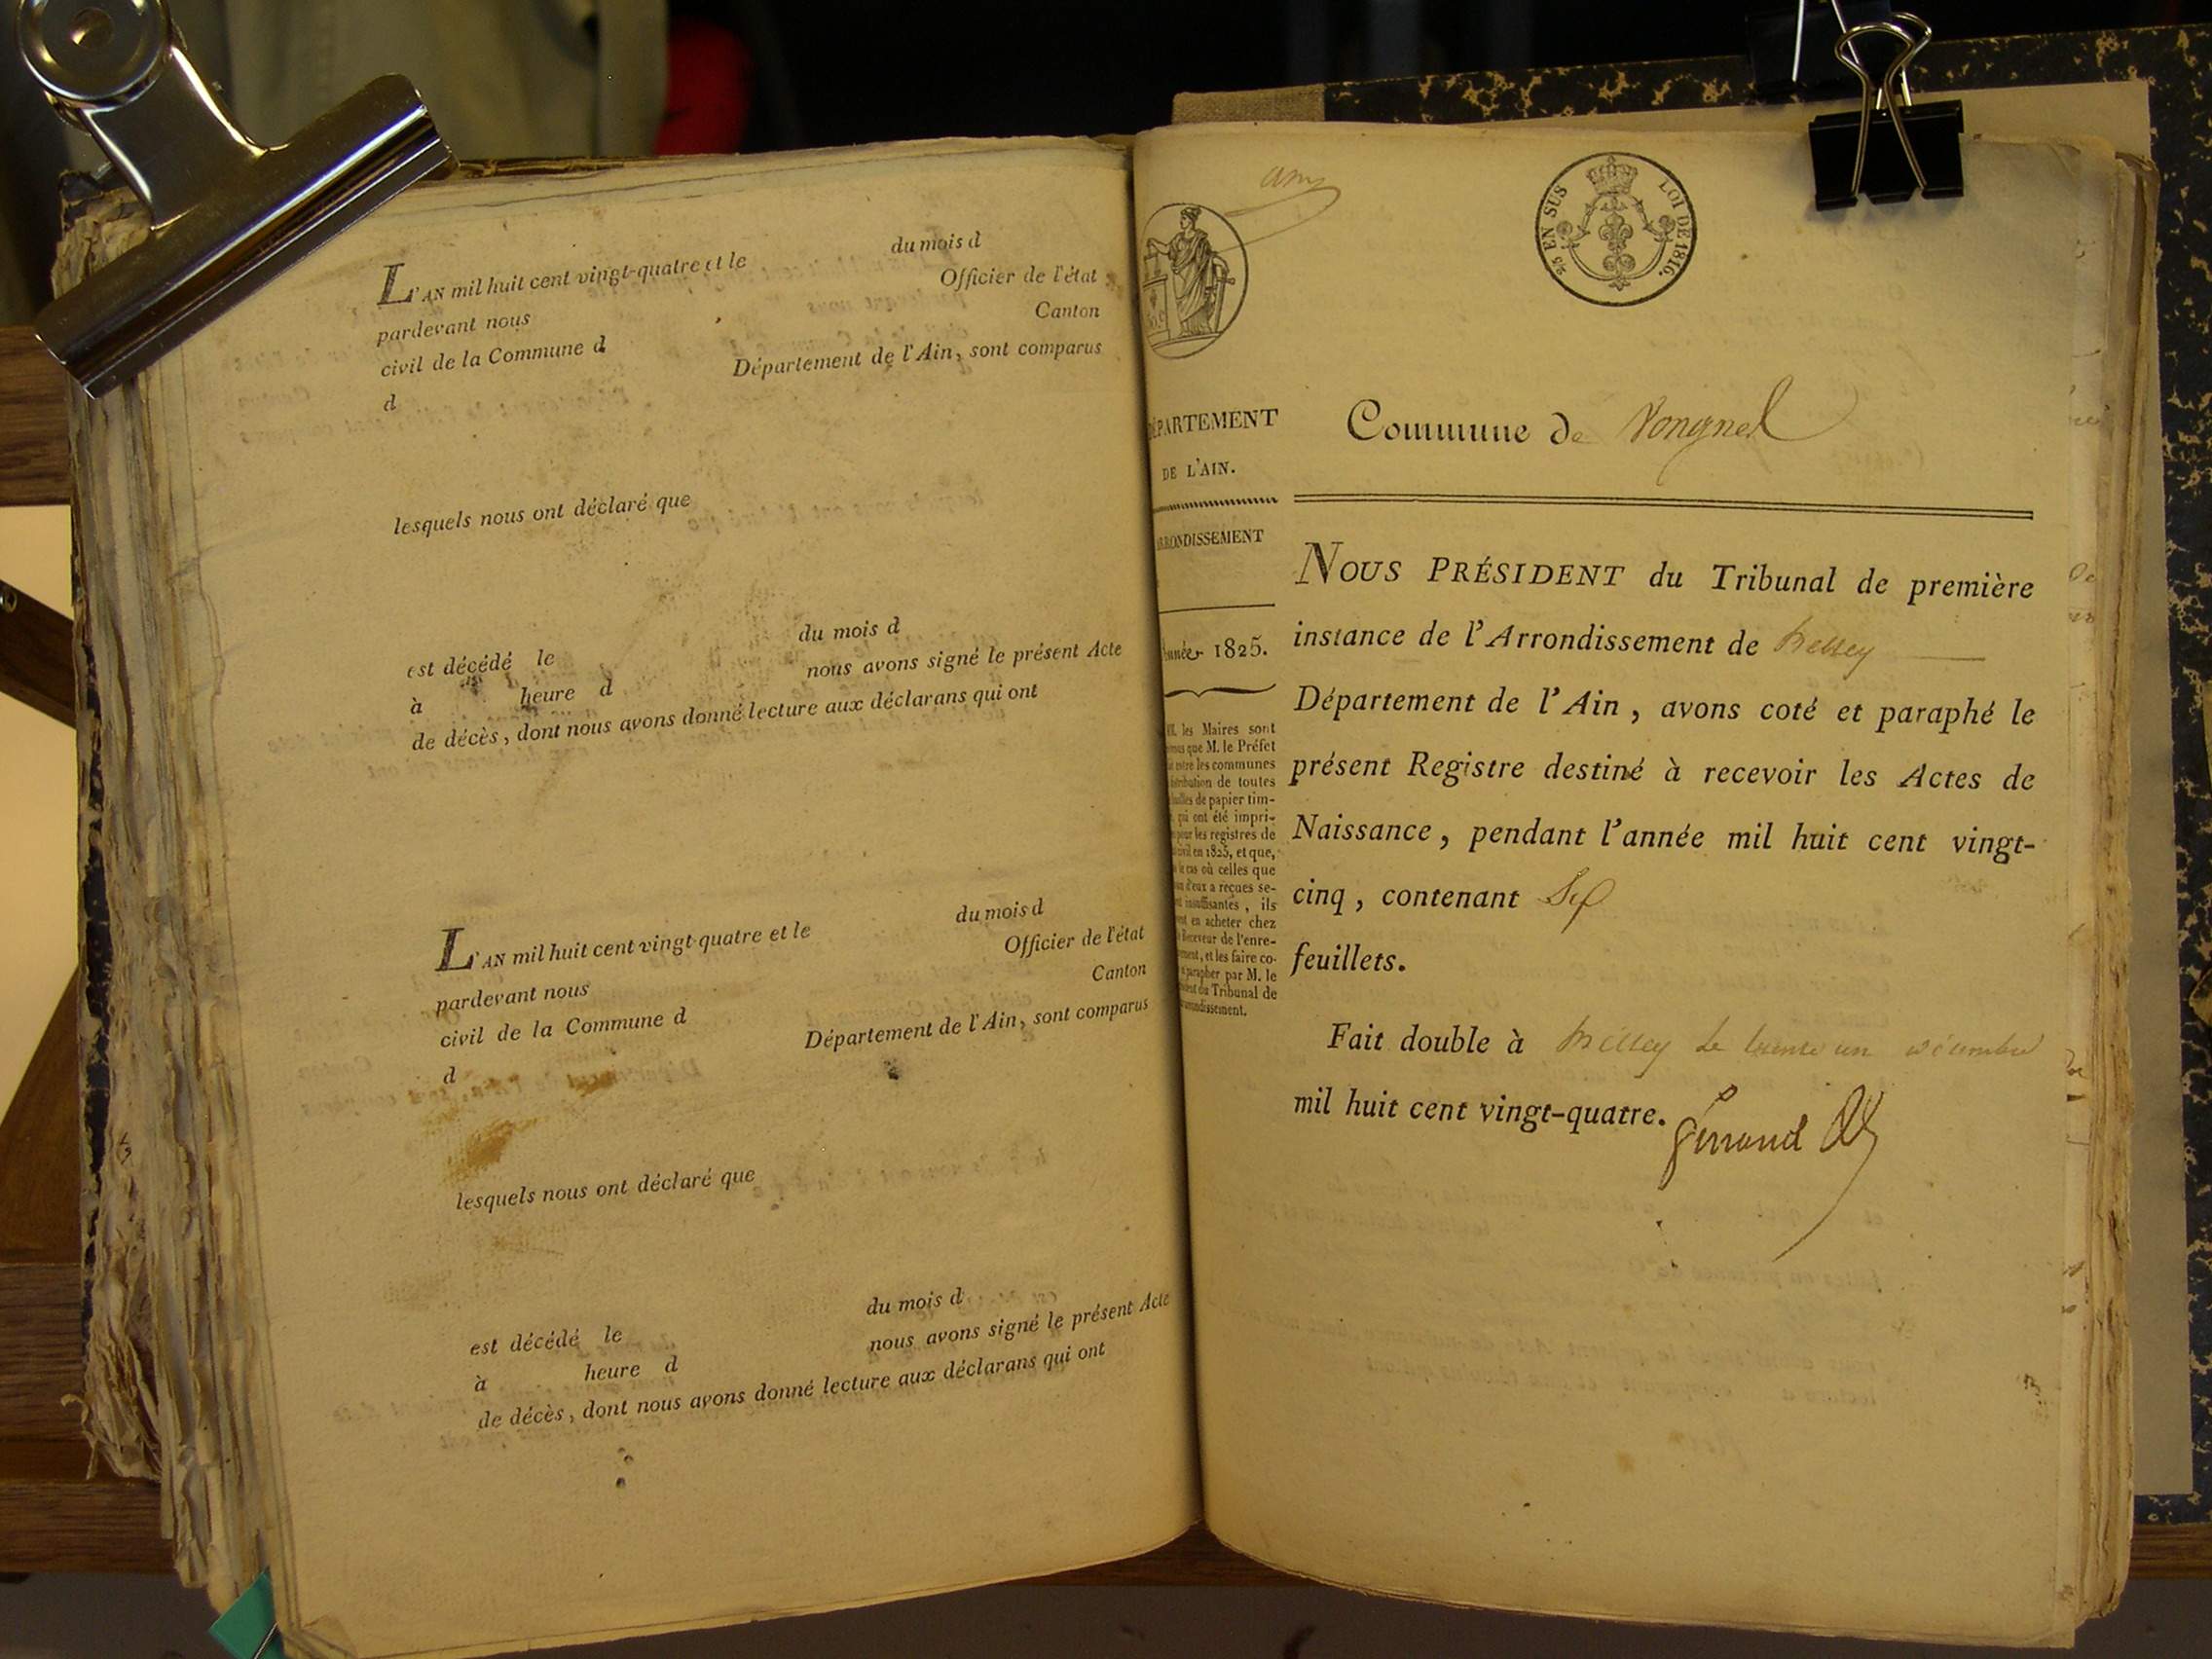 L'AN mil huit cent vingt-quatre et le du mois d
pardevant nous Officier de l'état
civil de la Commune d Canton
d Département de l'Ain, sont comparus
lesquels nous ont déclaré que
est décédé le du mois d
à heure d nous avons signé le présent Acte
de décès, dont nous avons donné lecture aux déclarans qui ont
L'AN mil huit cent vingt-quatre et le du mois d
pardevant nous Officier de l'état
civil de la Commune d Canton
d Département de l'Ain, sont comparus
lesquels nous ont déclaré que
est décédé le du mois d
à heure d nous avons signé le présent Acte
de décès, dont nous avons donné lecture aux déclarans qui ont
5/5 EN SUS LOI DE 1816.
DÉPARTEMENT
DE L'AIN.
ARRONDISSEMENT
Année 1825.
MM. les Maires sont
que M. le Préfet
entre les communes
de toutes
de papier tim-
qui ont été impri-
pour les registres de
civil en 1825, et que,
le cas où celles que
d'eux a reçues se-
insuffisantes, ils
en acheter chez
Receveur de l'enre-
et les faire co-
parapher par M. le
du Tribunal de
Commune de Vongnes
NOUS PRÉSIDENT du Tribunal de première
instance de l'Arrondissement de Belley
Département de l'Ain, avons coté et paraphé le
présent Registre destiné à recevoir les Actes de
Naissance, pendant l'année mil huit cent vingt-
cinq, contenant Six
feuillets.
Fait double à Belley Le trente un décembre
mil huit cent vingt-quatre.